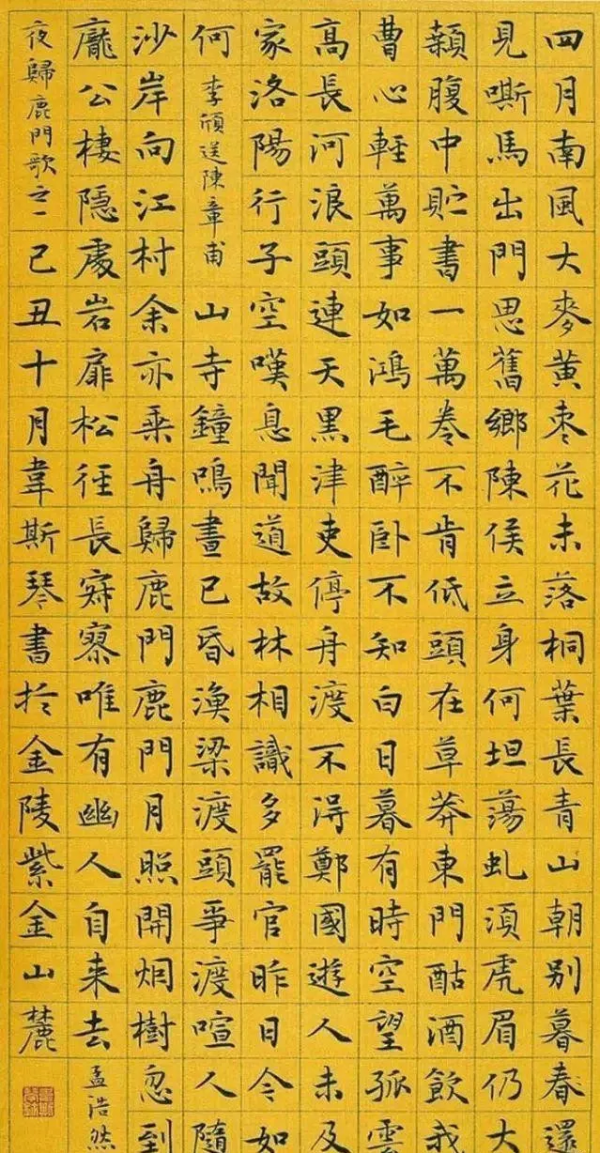 四月南風大麥黃枣花未落桐葉長青山朝別暮春還
見嘶馬出門思舊鄉陳侯立身何坦蕩虬須虎眉仍大
顙腹中貯書一萬卷不肯低頭在草莽東門酤酒飲我
曹心輕萬事如鴻毛醉卧不知白日暮有時空望孤雲
高長河浪頭連天黑津吏停舟渡不得鄭國遊人未及
家洛陽行子空嘆息聞道故林相識多罷官昨日今如
何 李頎送陳章甫 山寺鐘鳴晝已昏漁梁渡頭爭渡喧人隨
沙岸向江村余亦乘舟歸鹿門鹿門月照開烟樹忽到
龐公棲隱處岩扉松徑長寂寥唯有幽人自来去 孟浩然
夜歸鹿門歌之一 己丑十月韋斯琴書於金陵紫金山麓